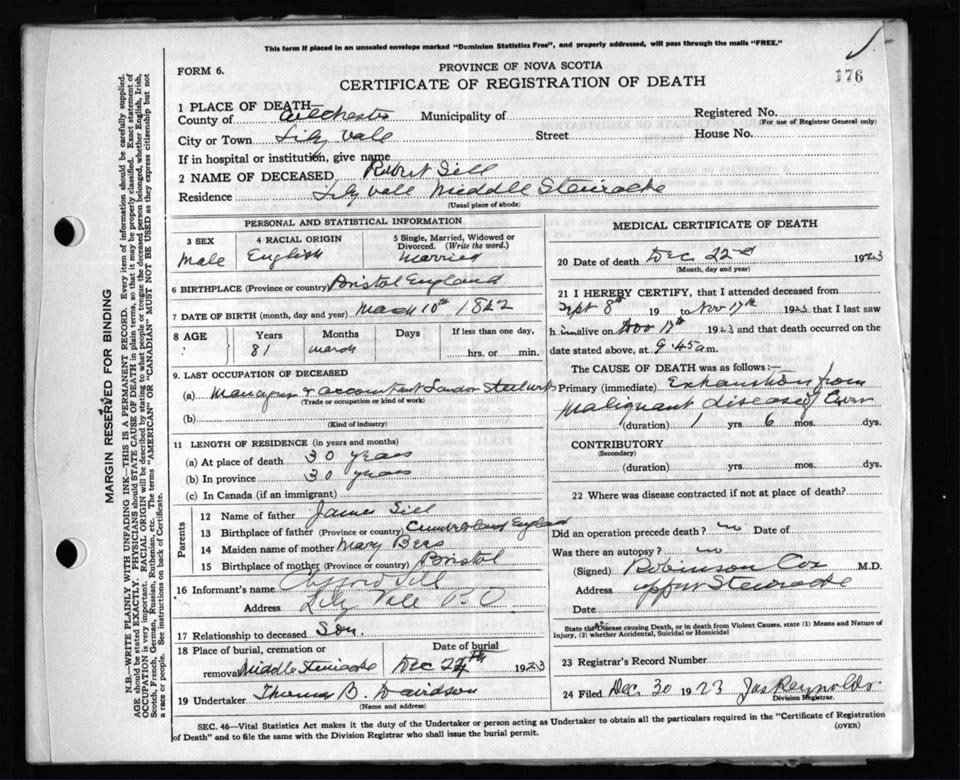 This form if placed in an unsealed envelope marked "Dominion Statistics Free", and properly addressed, will pass through the mails "FREE."
FORM 6.
PROVINCE OF NOVA SCOTIA
CERTIFICATE OF REGISTRATION OF DEATH
176
1 PLACE OF DEATH—
County of Colchester Municipality of Registered No.
(For use of Registrar General only)
City or Town Lily Vale Street House No.
If in hospital or institution, give name
2 NAME OF DECEASED Robert Sill
Residence Lily Vale Middle Stewiacke
(Usual place of abode)
PERSONAL AND STATISTICAL INFORMATION
3 SEX 4 RACIAL ORIGIN 5 Single, Married, Widowed or Divorced. (Write the word.)
Male English Married
6 BIRTHPLACE (Province or country) Bristol England
7 DATE OF BIRTH (month, day and year) March 10th 1842
8 AGE Years Months Days If less than one day,
81 March hrs. or min.
9. LAST OCCUPATION OF DECEASED
(a) Manager & accountant
(Trade or occupation or kind of work)
(b)
(Kind of industry)
11 LENGTH OF RESIDENCE (in years and months)
(a) At place of death 30 years
(b) In province 30 years
(c) In Canada (if an immigrant)
Parents
12 Name of father James Sill
13 Birthplace of father (Province or country) Cumberland England
14 Maiden name of mother Mary
15 Birthplace of mother (Province or country) Bristol
16 Informant's name Clifford Sill
Address Lily Vale P.O
17 Relationship to deceased Son.
18 Place of burial, cremation or removal Date of burial
Middle Stewiacke Dec 24th 1923
19 Undertaker Thomas B. Davidson
(Name and address)
MEDICAL CERTIFICATE OF DEATH
20 Date of death Dec 22nd 1923
(Month, day and year)
21 I HEREBY CERTIFY, that I attended deceased from
Sept 8th 19 to Nov 17th 1923, that I last saw
h im alive on Nov 17th 1923 and that death occurred on the
date stated above, at 9.45 a m.
The CAUSE OF DEATH was as follows:—
Primary (immediate) Exhaustion from
Malignant disease
(duration) 1 yrs. 6 mos. dys.
CONTRIBUTORY
(Secondary)
(duration) yrs. mos. dys.
22 Where was disease contracted if not at place of death?
Did an operation precede death? no Date of
Was there an autopsy? no
(Signed) Robinson Cox M.D.
Address Upper Stewiacke
Date
State the Disease causing Death, or in death from Violent Causes, state (1) Means and Nature of Injury, (2) whether Accidental, Suicidal or Homicidal
23 Registrar's Record Number
24 Filed Dec 30 1923 Jas Reynolds
Division Registrar.
SEC. 46—Vital Statistics Act makes it the duty of the Undertaker or person acting as Undertaker to obtain all the particulars required in the "Certificate of Registration
of Death" and to file the same with the Division Registrar who shall issue the burial permit.
(OVER)
MARGIN RESERVED FOR BINDING
N.B.—WRITE PLAINLY WITH UNFADING INK—THIS IS A PERMANENT RECORD. Every item of information should be carefully supplied.
AGE should be stated EXACTLY. PHYSICIANS should STATE CAUSE OF DEATH in plain terms, so that it may be properly classified. Exact statement of
OCCUPATION is very important. RACIAL ORIGIN will be described by stating to what people or tongue the deceased person belonged, whether English, Irish,
Scotch, French, German, Russian, Ruthenian, etc. The terms "AMERICAN" or "CANADIAN" MUST NOT BE USED as they express citizenship but not
a race or people. See instructions on back of Certificate.